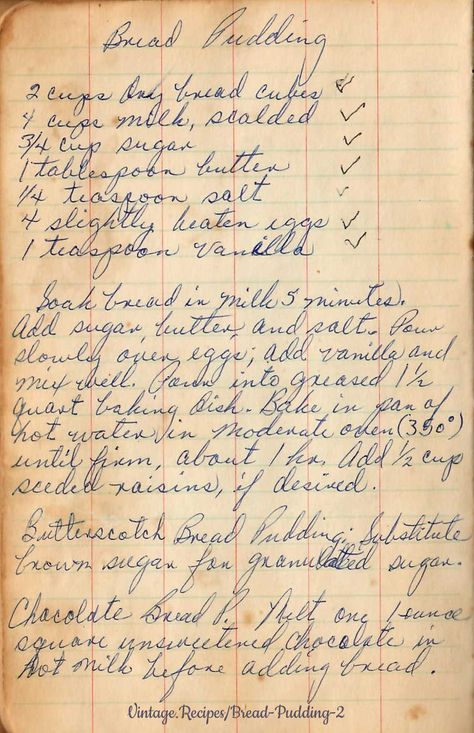 Bread Pudding
2 cups dry bread cubes ✓
4 cups milk, scalded ✓
3/4 cup sugar ✓
1 tablespoon butter ✓
1/4 teaspoon salt ✓
4 slightly beaten eggs ✓
1 teaspoon vanilla ✓
Soak bread in milk 5 minutes.
Add sugar, butter, and salt. Pour
slowly over eggs; add vanilla and
mix well. Pour into greased 1 1/2
quart baking dish. Bake in pan of
hot water in moderate oven (350°)
until firm, about 1 hr. Add 1/2 cup
seeded raisins, if desired.
Butterscotch Bread Pudding: Substitute
brown sugar for granulated sugar.
Chocolate Bread P. Melt one 1 ounce
square unsweetened chocolate in
hot milk before adding bread.
Vintage.Recipes/Bread-Pudding-2